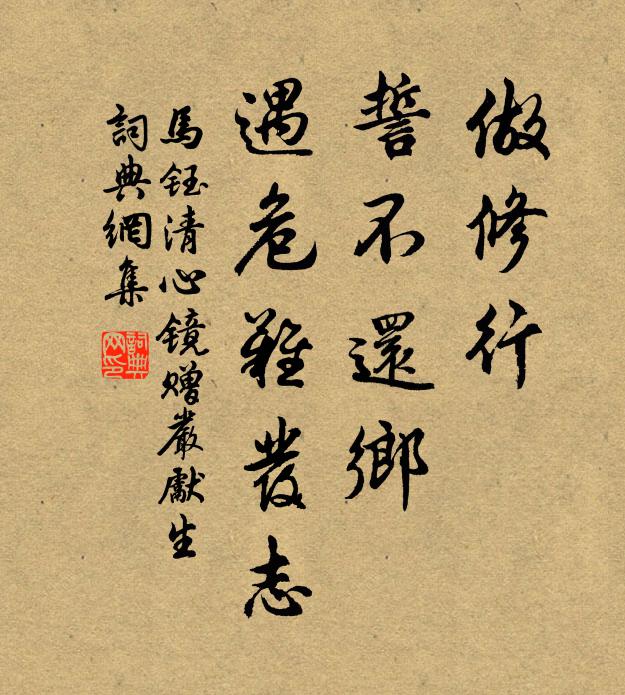 做修行
誓不還鄉
遇危難發志
馬鈺清心镜赠嚴獻生
詞典網集
詞典網印